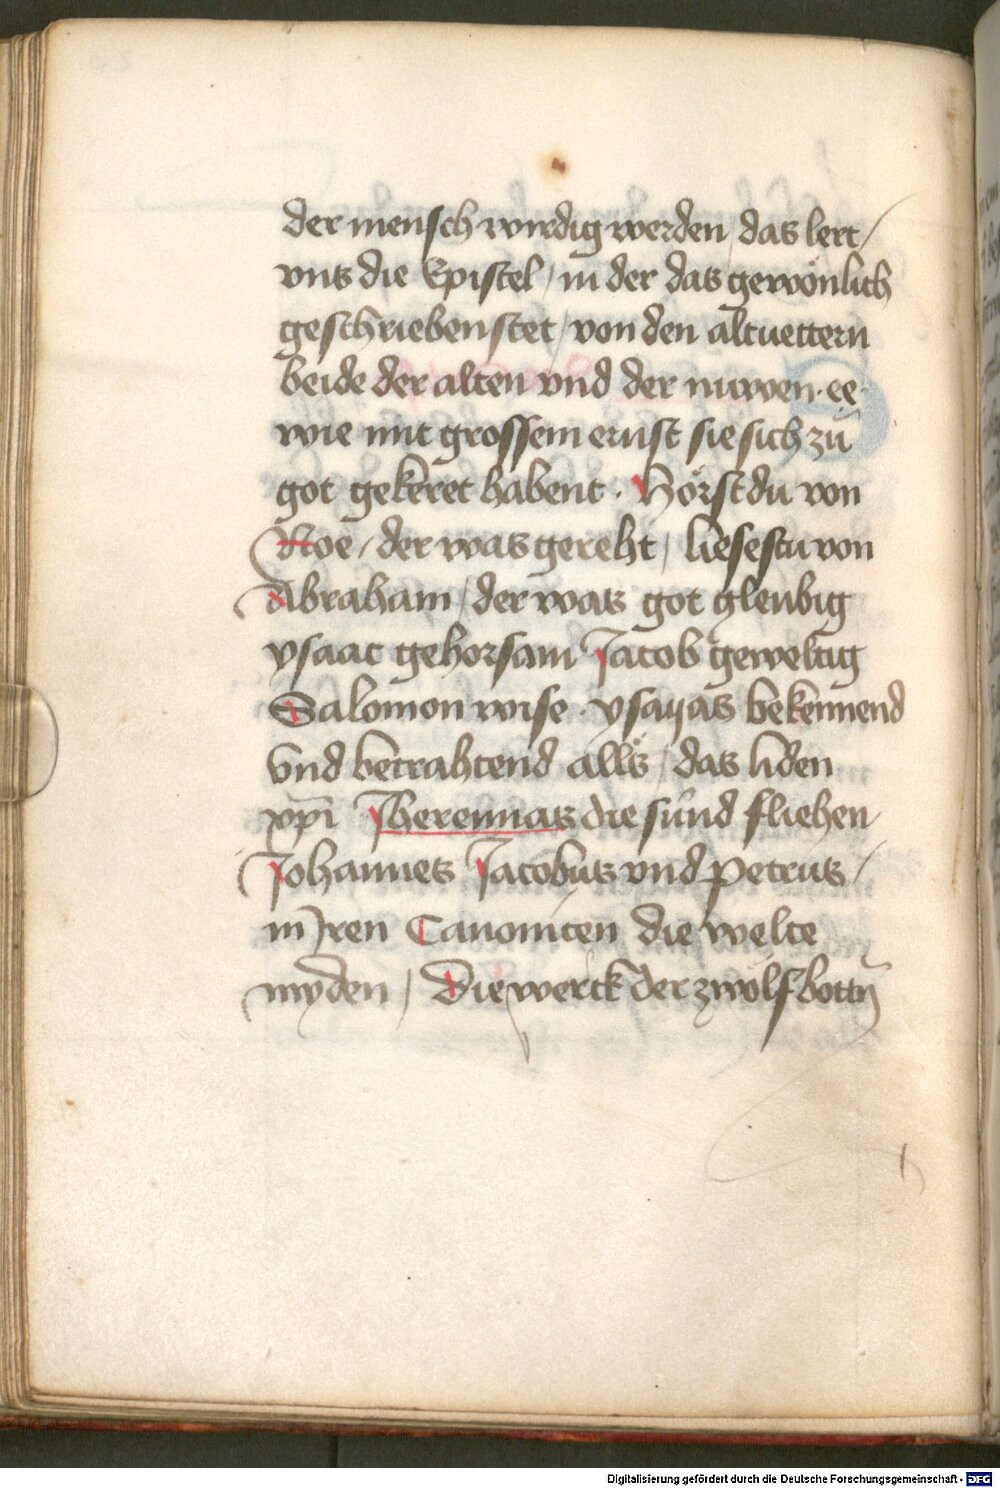 der mensch wirdig werden / das lert /
vns die Epistel / in der das gewönlich
geschrieben stet / von den altuettern
beide der alten vnd der nuwen · ee ·
wie mit grossem ernst sie sich zů
got gekeret habent · Hörst du von
Noe / der was gereht / liesestu von
Abraham / der was got gleubig
ysaac gehorsam Jacob geweltig
Salomon wise · ysayas bekennend
vnd betrahtend alls / das liden
xp̄i Jheremias die sünd fliehen /
Johannes Jacobus vnd petrus /
in Jren Canoniten die welte
myden / Die werck der zwölfbottn̄
Digitalisierung gefördert durch die Deutsche Forschungsgemeinschaft - DFG